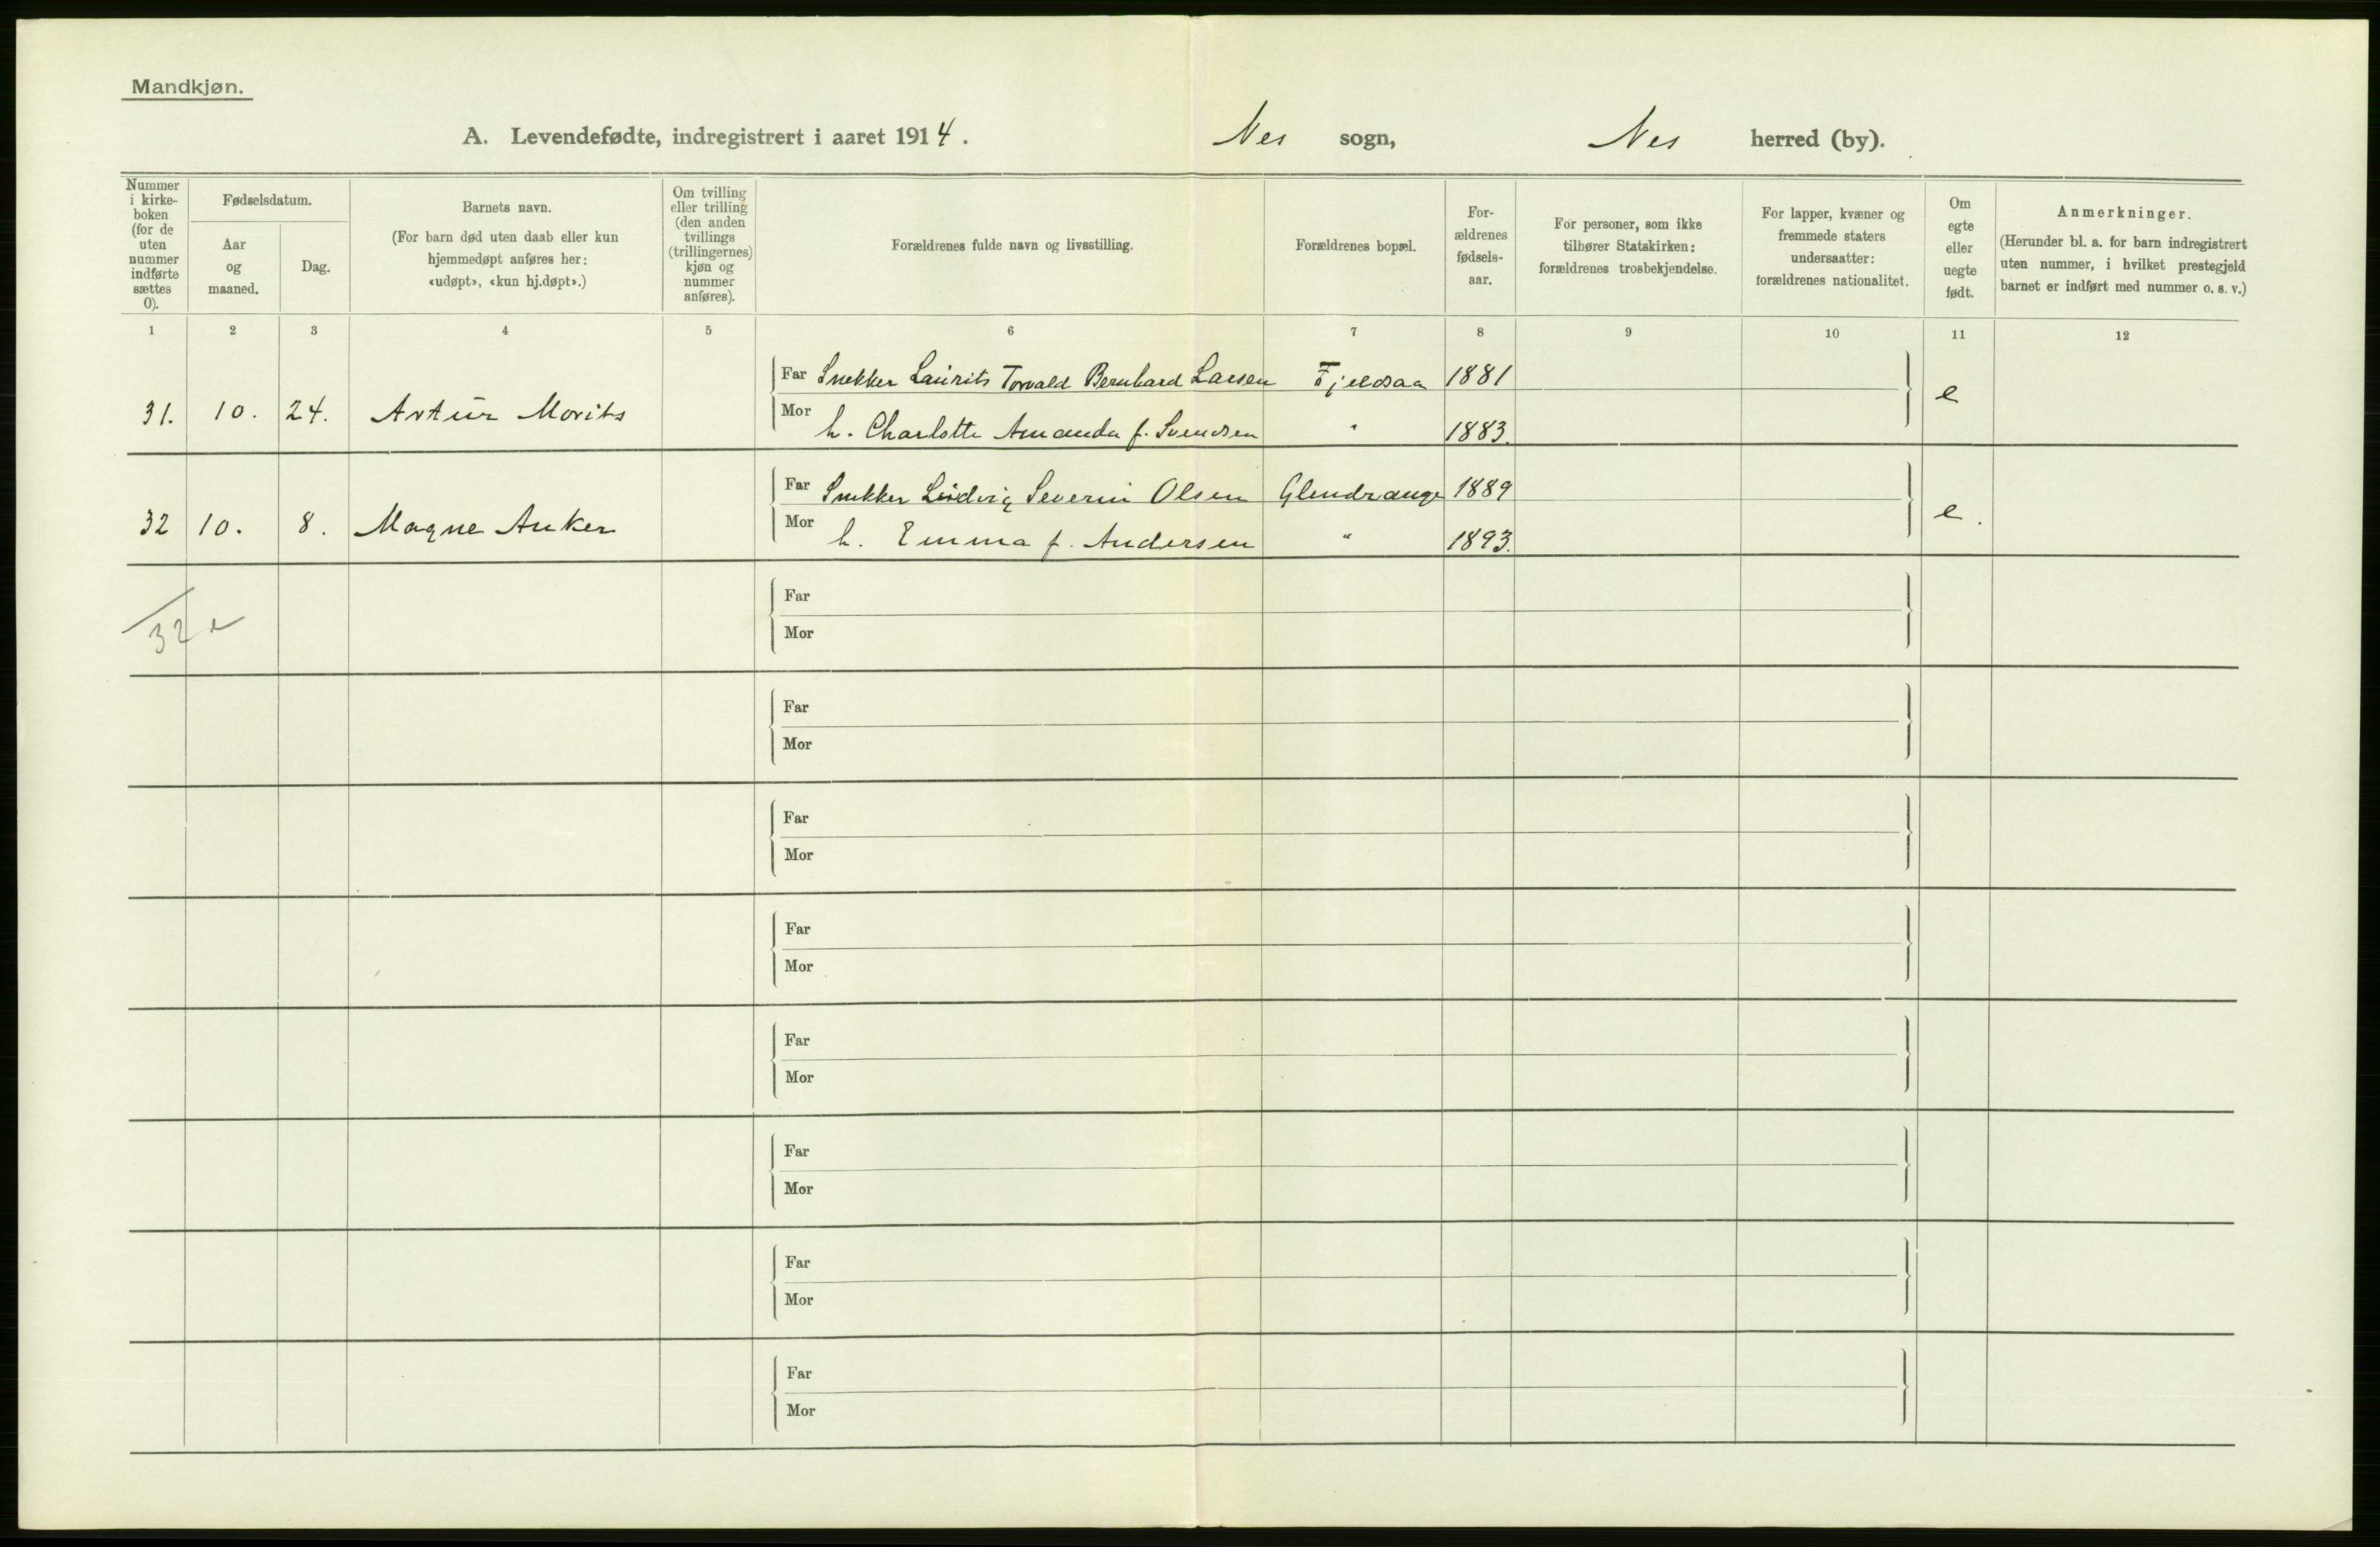 Mandkjøn.
A. Levendefødte, indregistrert i aaret 1914. Nes sogn, Nes herred (by).
Nummer i kirke-boken (for de uten nummer indførte sættes 0).
Fødselsdatum.
Aar og maaned.
Dag.
Barnets navn.
(For barn død uten daab eller kun hjemmedøpt anføres her: «udøpt», «kun hj.døpt».)
Om tvilling eller trilling (den anden tvillings (trillingernes) kjøn og nummer anføres).
Forældrenes fulde navn og livsstilling.
Forældrenes bopæl.
For-ældrenes fødsels-aar.
For personer, som ikke tilhører Statskirken: forældrenes trosbekjendelse.
For lapper, kvæner og fremmede staters undersaatter: forældrenes nationalitet.
Om egte eller uegte født.
Anmerkninger.
(Herunder bl. a. for barn indregistrert uten nummer, i hvilket prestegjeld barnet er indført med nummer o. s. v.)
1 2 3 4 5 6 7 8 9 10 11 12
Far Snekker Laurits Torvald Bernhard Larsen Fjeldsaa 1881
31. 10. 24. Artur Morits e
Mor h. Charlotte Amanda f. Svendsen " 1883.
Far Snekker Ludvig Severin Olsen Glendrange 1889
32 10. 8. Magne Anker e.
Mor h. Emma f. Andersen " 1893.
Far
32
Mor
Far
Mor
Far
Mor
Far
Mor
Far
Mor
Far
Mor
Far
Mor
Far
Mor